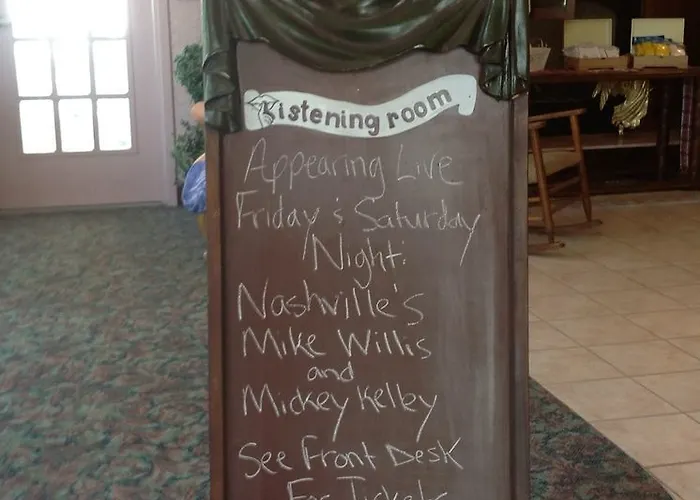 Listening room
Appearing Live
Friday & Saturday
Night:
Nashville's
Mike Willis
and
Mickey Kelley
See Front Desk
For Tickets